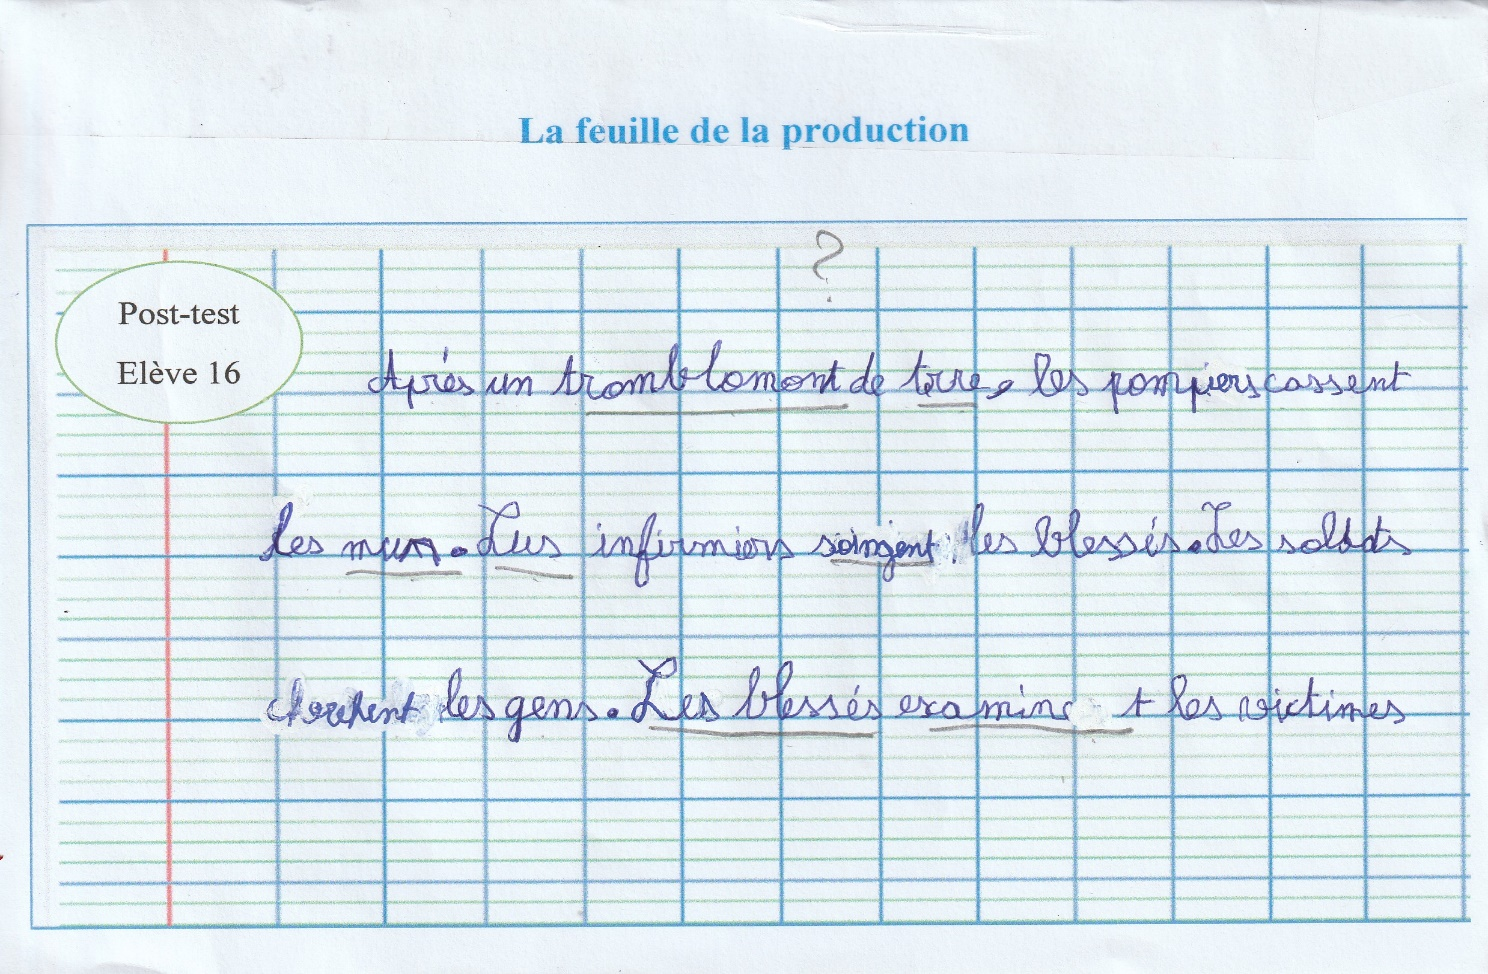 La feuille de la production
?
Post-test
Elève 16
Après un tromblomont de terre, les pompiers cassent
les murs. Lus infirmiers soingent les blessés. Les soldats
cherchent les gens. Les blessés examin t les victimes